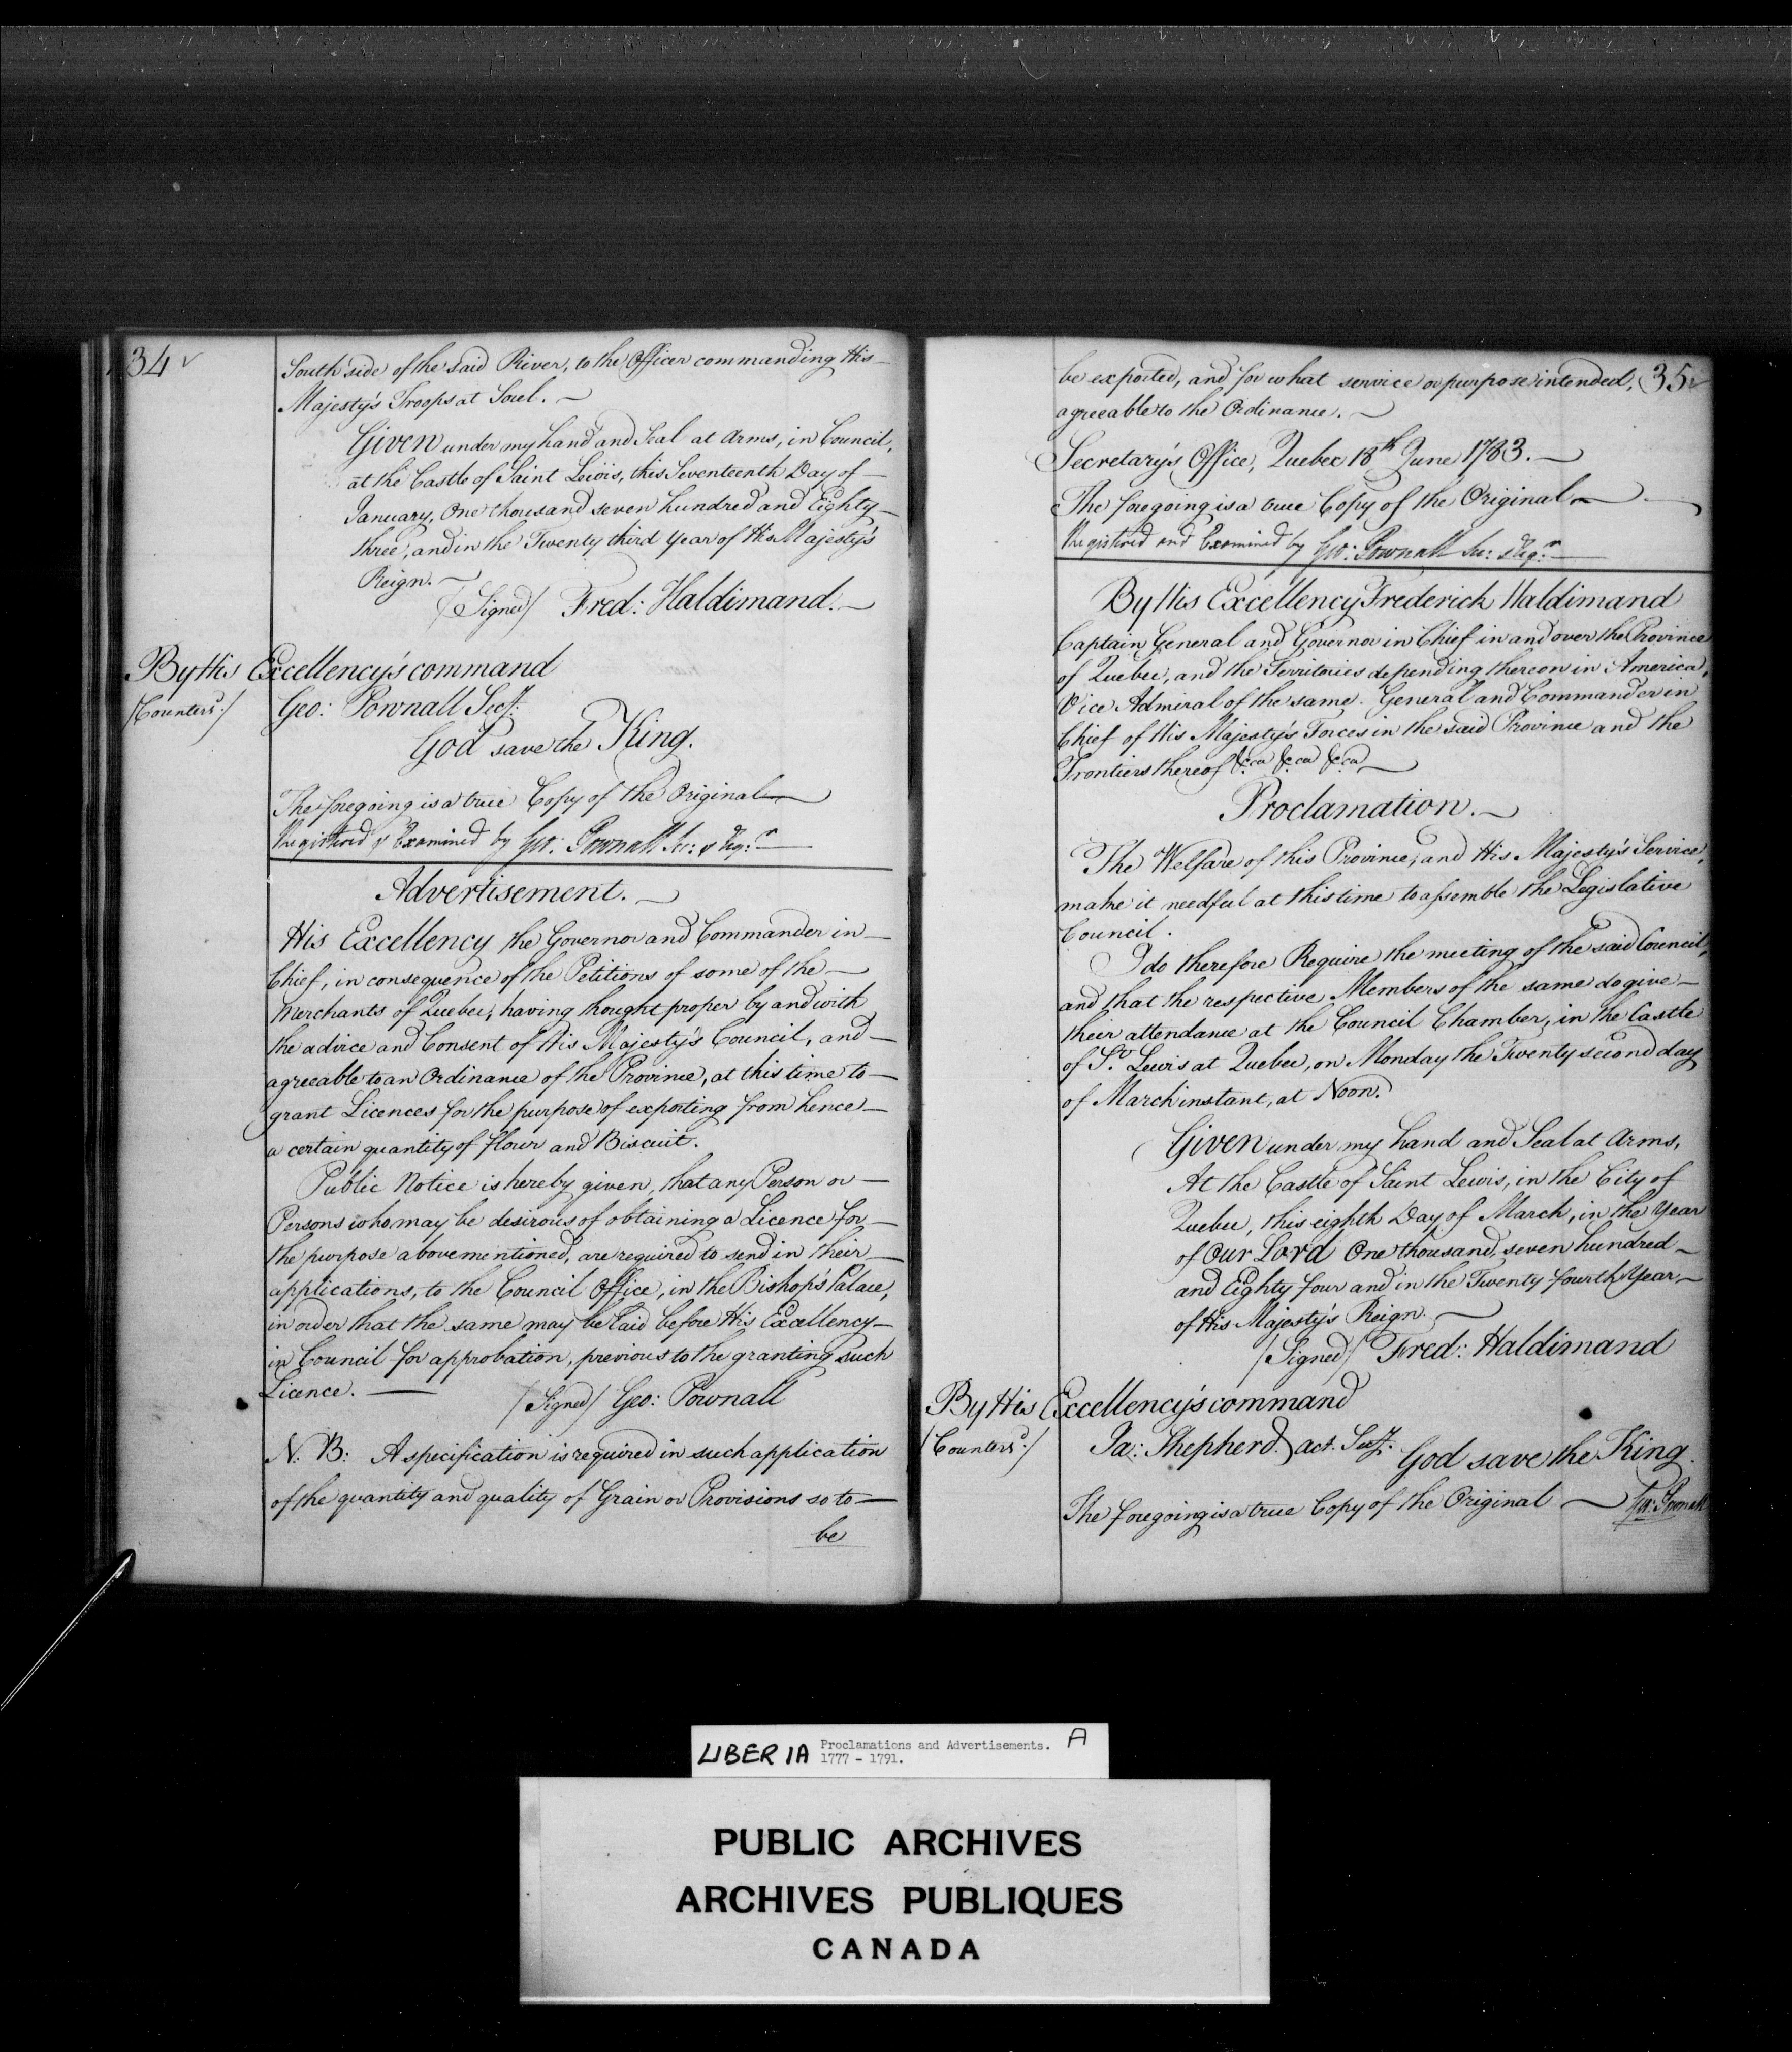 34
South side of the said River, to the Officer commanding His
Majesty's Troops at Sorel.
Given under my hand and Seal at Arms, in Council,
at the Castle of Saint Lewis, this Seventeenth Day of
January, One thousand seven hundred and Eighty
three, and in the Twenty third Year of His Majesty's
Reign.
(Signed) Fred: Haldimand.
By His Excellency's command
(Counters:) Geo: Pownall Secy:
God save the King.
The foregoing is a true Copy of the Original
Registered & Examined by Geo: Pownall Sec: & Reg:r
Advertisement.
His Excellency the Governor and Commander in
Chief, in consequence of the Petitions of some of the
Merchants of Quebec, having thought proper by and with
the advice and Consent of His Majesty's Council, and
agreeable to an Ordinance of the Province, at this time to
grant Licences for the purpose of exporting from hence
a certain quantity of Flour and Biscuit.
Public Notice is hereby given, that any Person or
Persons who may be desirous of obtaining a Licence for
the purpose abovementioned, are required to send in their
applications, to the Council Office, in the Bishop's Palace,
in order that the same may be laid before His Excellency
in Council for approbation, previous to the granting such
Licence.
(Signed) Geo: Pownall
N: B: A specification is required in such application
of the quantity and quality of Grain or Provisions so to
be
35
be exported, and for what service or purpose intended,
agreeable to the Ordinance.
Secretary's Office, Quebec 18th June 1783.
The foregoing is a true Copy of the Original
Registered and Examined by Geo: Pownall Sec: & Reg:r
By His Excellency Frederick Haldimand
Captain General and Governor in Chief in and over the Province
of Quebec, and the Territories depending thereon in America,
Vice Admiral of the same. General and Commander in
Chief of His Majesty's Forces in the said Province and the
Frontiers thereof &ca &ca &ca
Proclamation.
The Welfare of this Province, and His Majesty's Service,
make it needful at this time to assemble the Legislative
Council.
I do therefore Require the meeting of the said Council,
and that the respective Members of the same do give
their attendance at the Council Chamber, in the Castle
of St. Lewis at Quebec, on Monday the Twenty second day
of March instant, at Noon.
Given under my hand and Seal at Arms,
At the Castle of Saint Lewis, in the City of
Quebec, this eighth Day of March, in the Year
of Our Lord One thousand, seven hundred
and Eighty four and in the Twenty fourth Year
of His Majesty's Reign.
(Signed) Fred: Haldimand
By His Excellency's command
(Counters:) Ja: Shepherd. act. Secy.
God save the King.
The foregoing is a true Copy of the Original Geo: Pownall
LIBER IA Proclamations and Advertisements. A
1777 - 1791.
PUBLIC ARCHIVES
ARCHIVES PUBLIQUES
CANADA